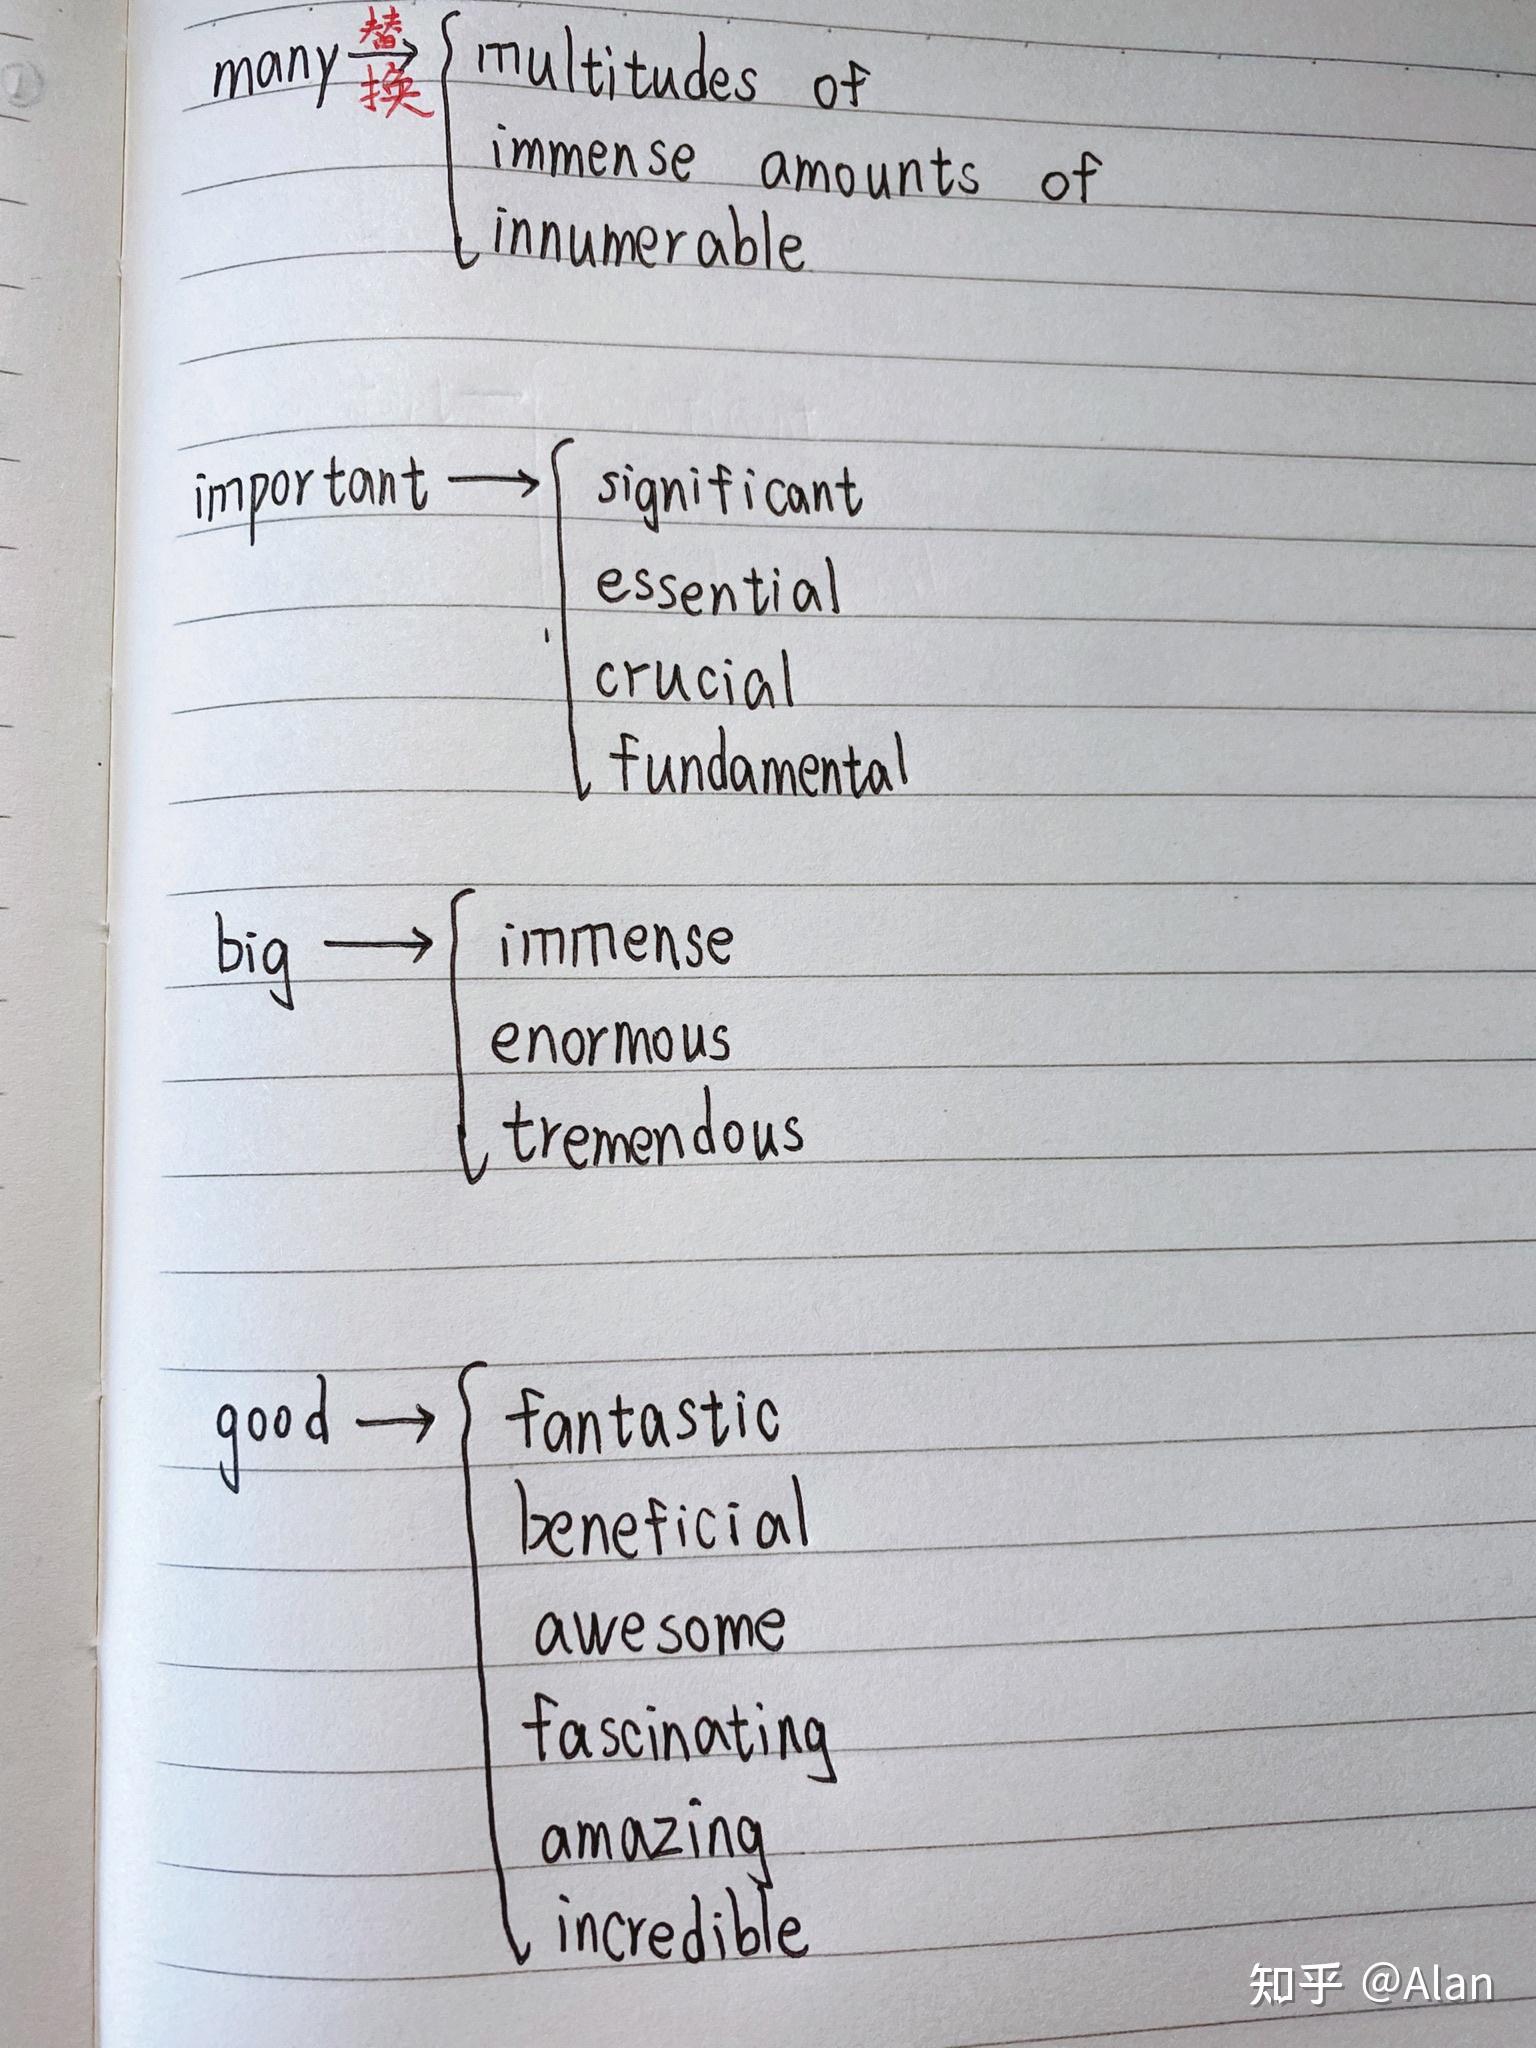 many 替换 multitudes of
immense amounts of
innumerable
important → significant
essential
crucial
fundamental
big → immense
enormous
tremendous
good → fantastic
beneficial
awesome
fascinating
amazing
incredible
知乎 @Alan